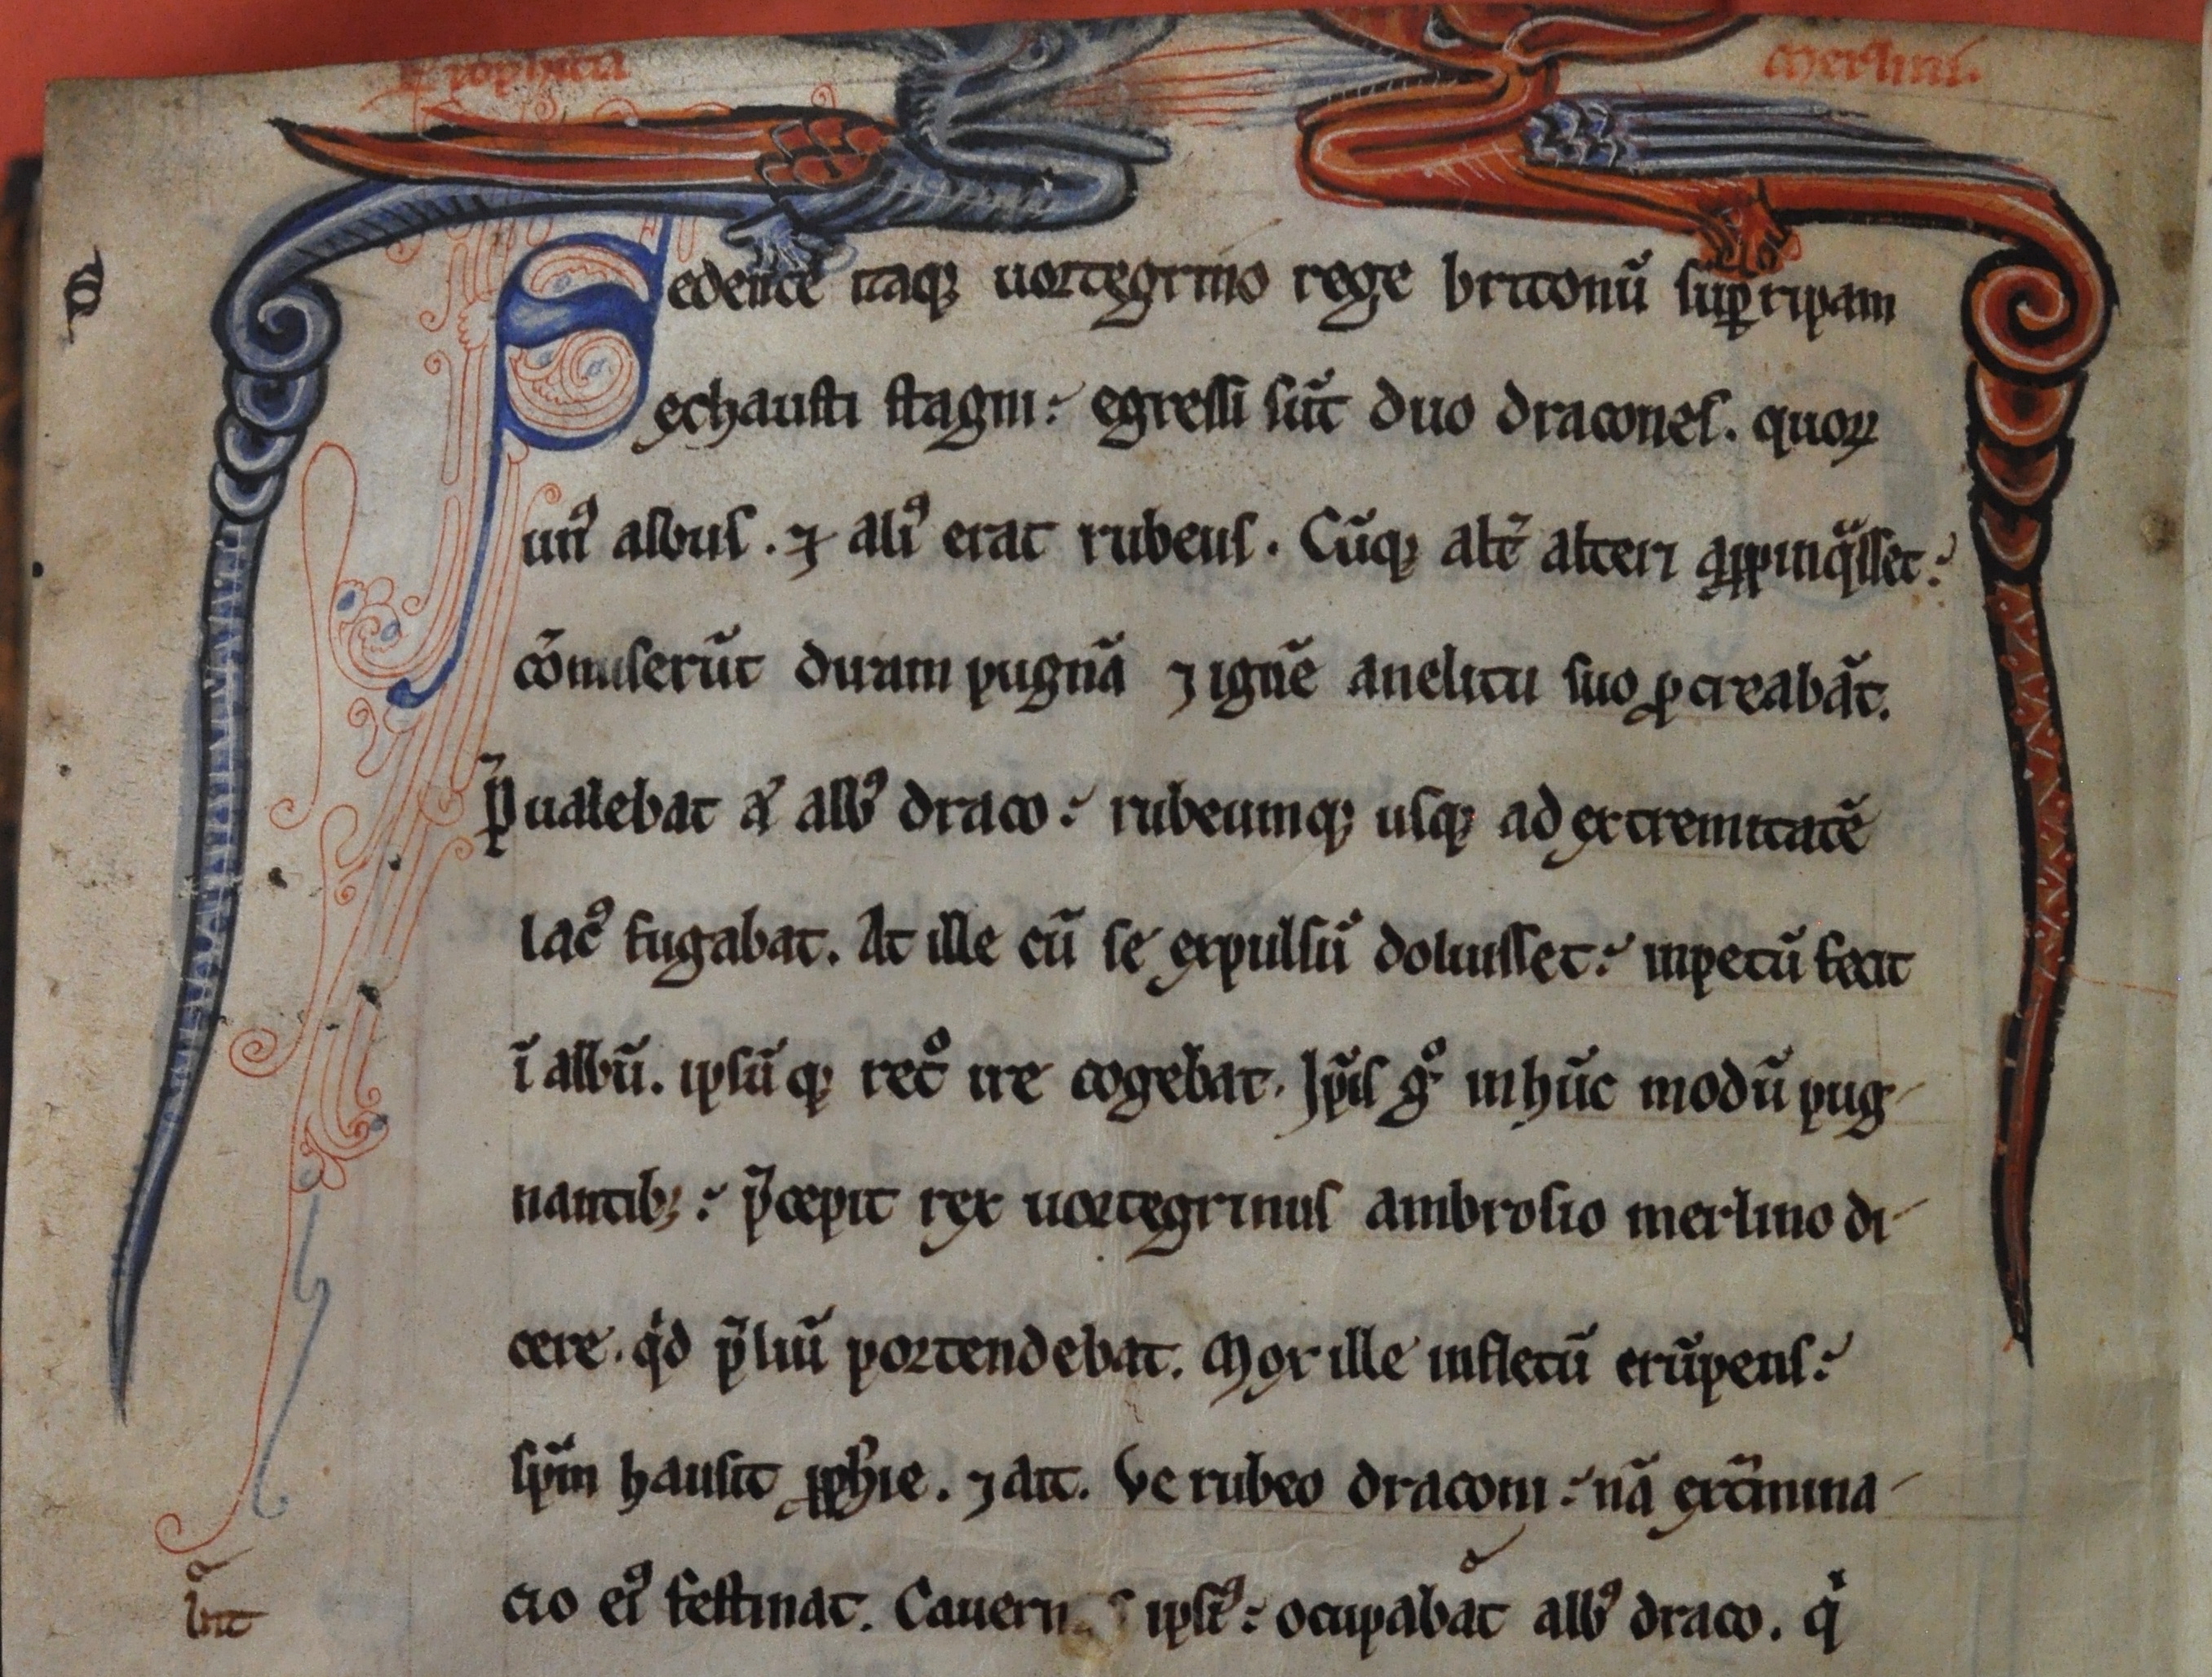 Prophetia Merlini.
Sedente itaq; uortegrino rege britonū sup ripam
echausti stagni: egressi sūt duo dracones. quoꝝ
unꝰ albus. ⁊ aliꝰ erat rubeus. Cūq; alt̄ alteri aꝓpinq̃sset:
cōmiserūt diram pugnā ⁊ ignē anelitu suo ꝓcreabāt.
P̄ualebat aͧ albꝰ draco: rubeumq; usq; ad extremitatē
lacꝰ fugabat. At ille cū se expulsū doluisset: inpetū fecit
ī albū. ipsūq; ret͛o ire cogebat. Ip̄is gͦ in hūc modū pug-
nantib;: p̄cepit rex uortegrinus ambrosio merlino di-
cere. qͥd p̄liū portendebat. Mox ille in fletū erūpens:
sp̄m hausit ꝓph̄ie. ⁊ ait. Ve rubeo draconi: nā ext̃mina-
cio eiꝰ festinat. Cauern s ipsiꝰ: ocupabāt albꝰ draco. qͥ
bit